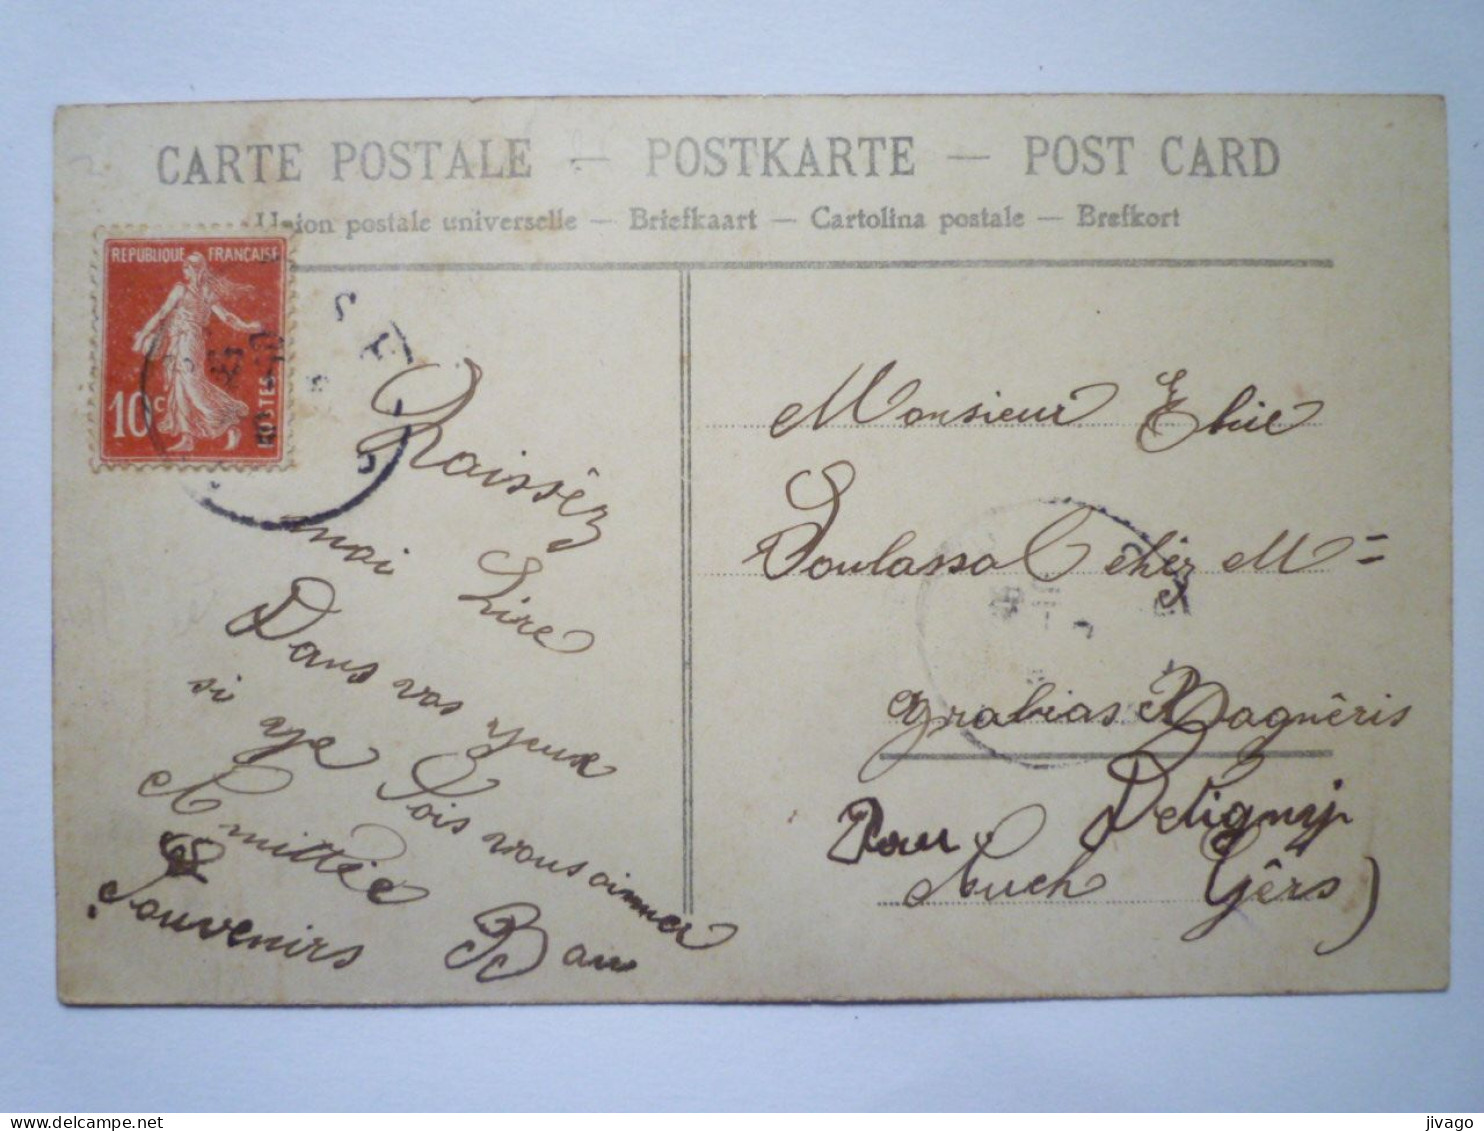 CARTE POSTALE — POSTKARTE — POST CARD
Union postale universelle — Briefkaart — Cartolina postale — Brefkort
REPUBLIQUE FRANÇAISE
10c
POSTES
Laissêz
moi Lire
Dans vos yeux
si ye Sois vous aimer
Amittiée
Souvenirs Bau
Monsieur Elie
Soulassol chêz M=
grabias Bagnêris
Pour Detigny
Auch Gêrs)
jivago